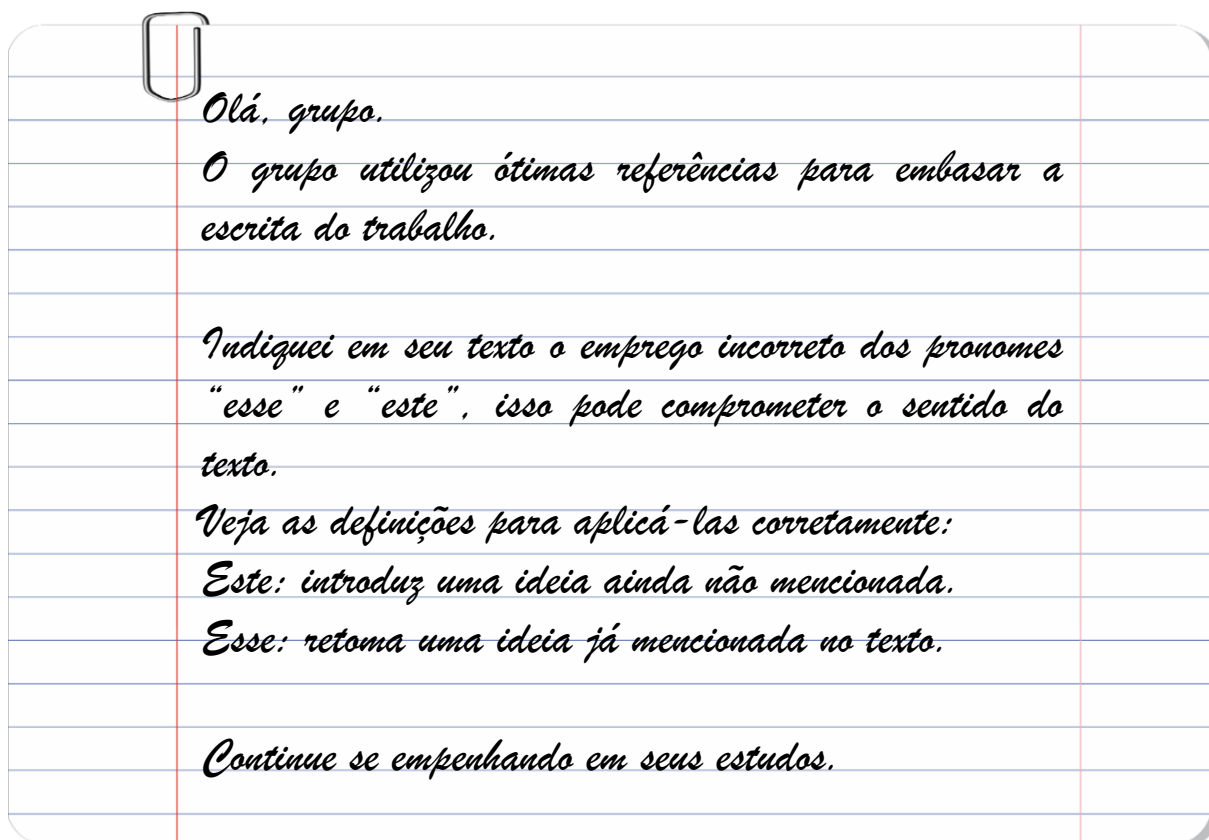 Olá, grupo.
O grupo utilizou ótimas referências para embasar a
escrita do trabalho.
Indiquei em seu texto o emprego incorreto dos pronomes
“esse” e “este”, isso pode comprometer o sentido do
texto.
Veja as definições para aplicá-las corretamente:
Este: introduz uma ideia ainda não mencionada.
Esse: retoma uma ideia já mencionada no texto.
Continue se empenhando em seus estudos.